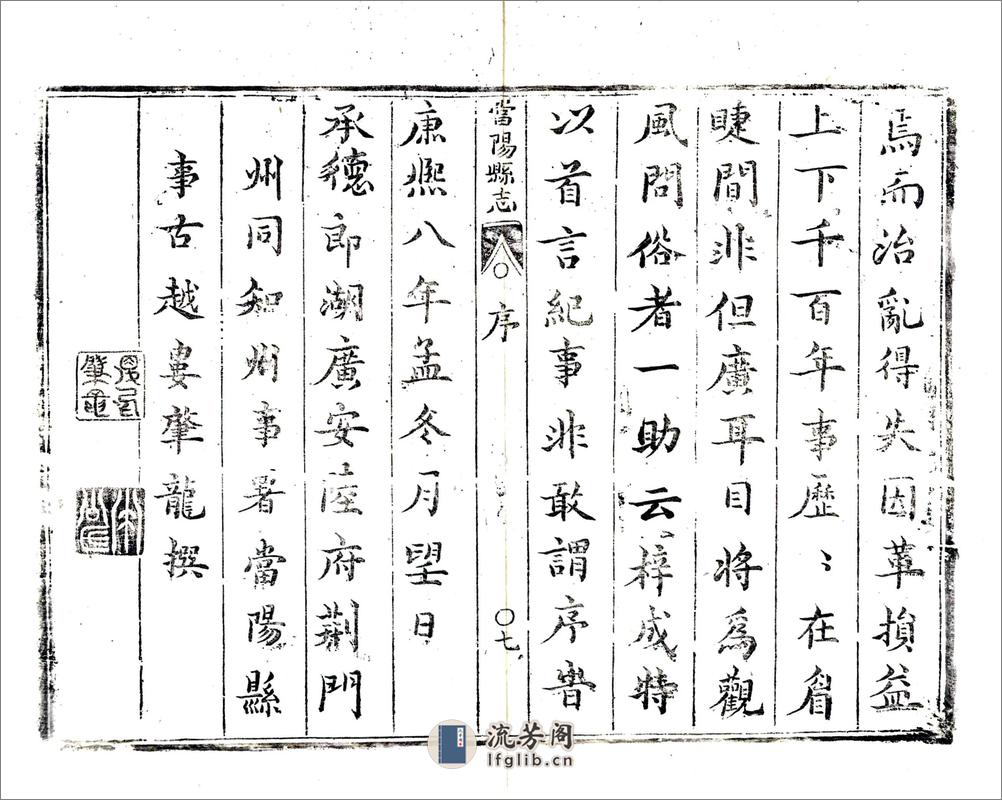 焉而治亂得失因革損益
上下千百年事歷〻在眉
睫間非但廣耳目將爲觀
風問俗者一助云梓成特
以首言紀事非敢謂序昔
當陽縣志
序
〇七
康熙八年孟冬月朢日
承德郎湖廣安陸府荆門
州同知州事署當陽縣
事古越婁肇龍撰
流芳阁
lfglib.cn